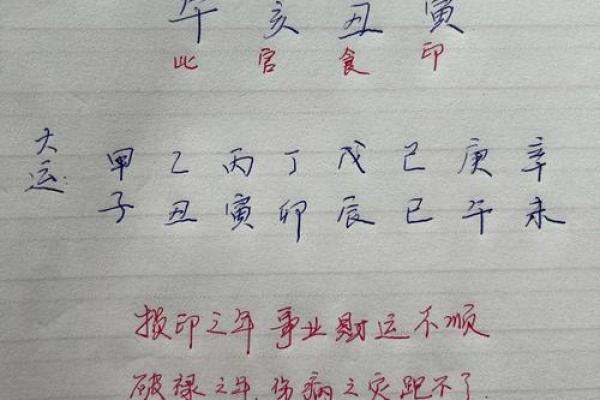 午 亥 丑 寅
比 官 食 印
大运 甲 乙 丙 丁 戊 己 庚 辛
子 丑 寅 卯 辰 巳 午 未
损印之年 事业财运不顺
破禄之年,伤病之灾跑不了.